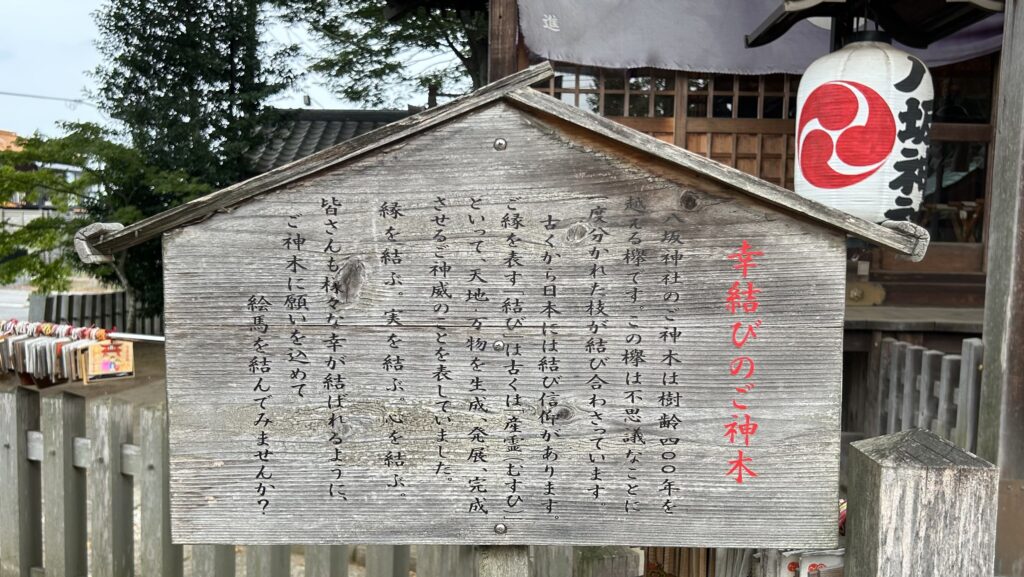 幸結びのご神木
八坂神社のご神木は樹齢四〇〇年を
越える欅です。この欅は不思議なことに
一度分かれた枝が結び合わさっています。
古くから日本には結び信仰があります。
ご縁を表す「結び」は古くは「産霊(むすひ)」
といって、天地・万物を生成、発展、完成
させるご神威のことを表していました。
縁を結ぶ。実を結ぶ。心を結ぶ。
皆さんも様々な幸が結ばれるように、
ご神木に願いを込めて
絵馬を結んでみませんか？
八坂神社
進